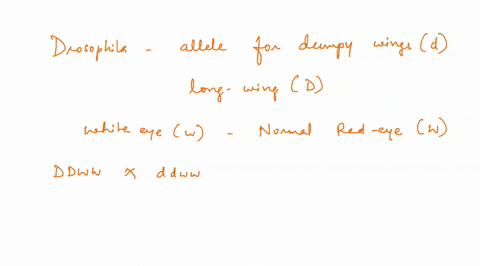 Drosophila - allele for dumpy wings (d)
long-wing (D)
white eye (w) - Normal Red-eye (W)
DDWW x ddww